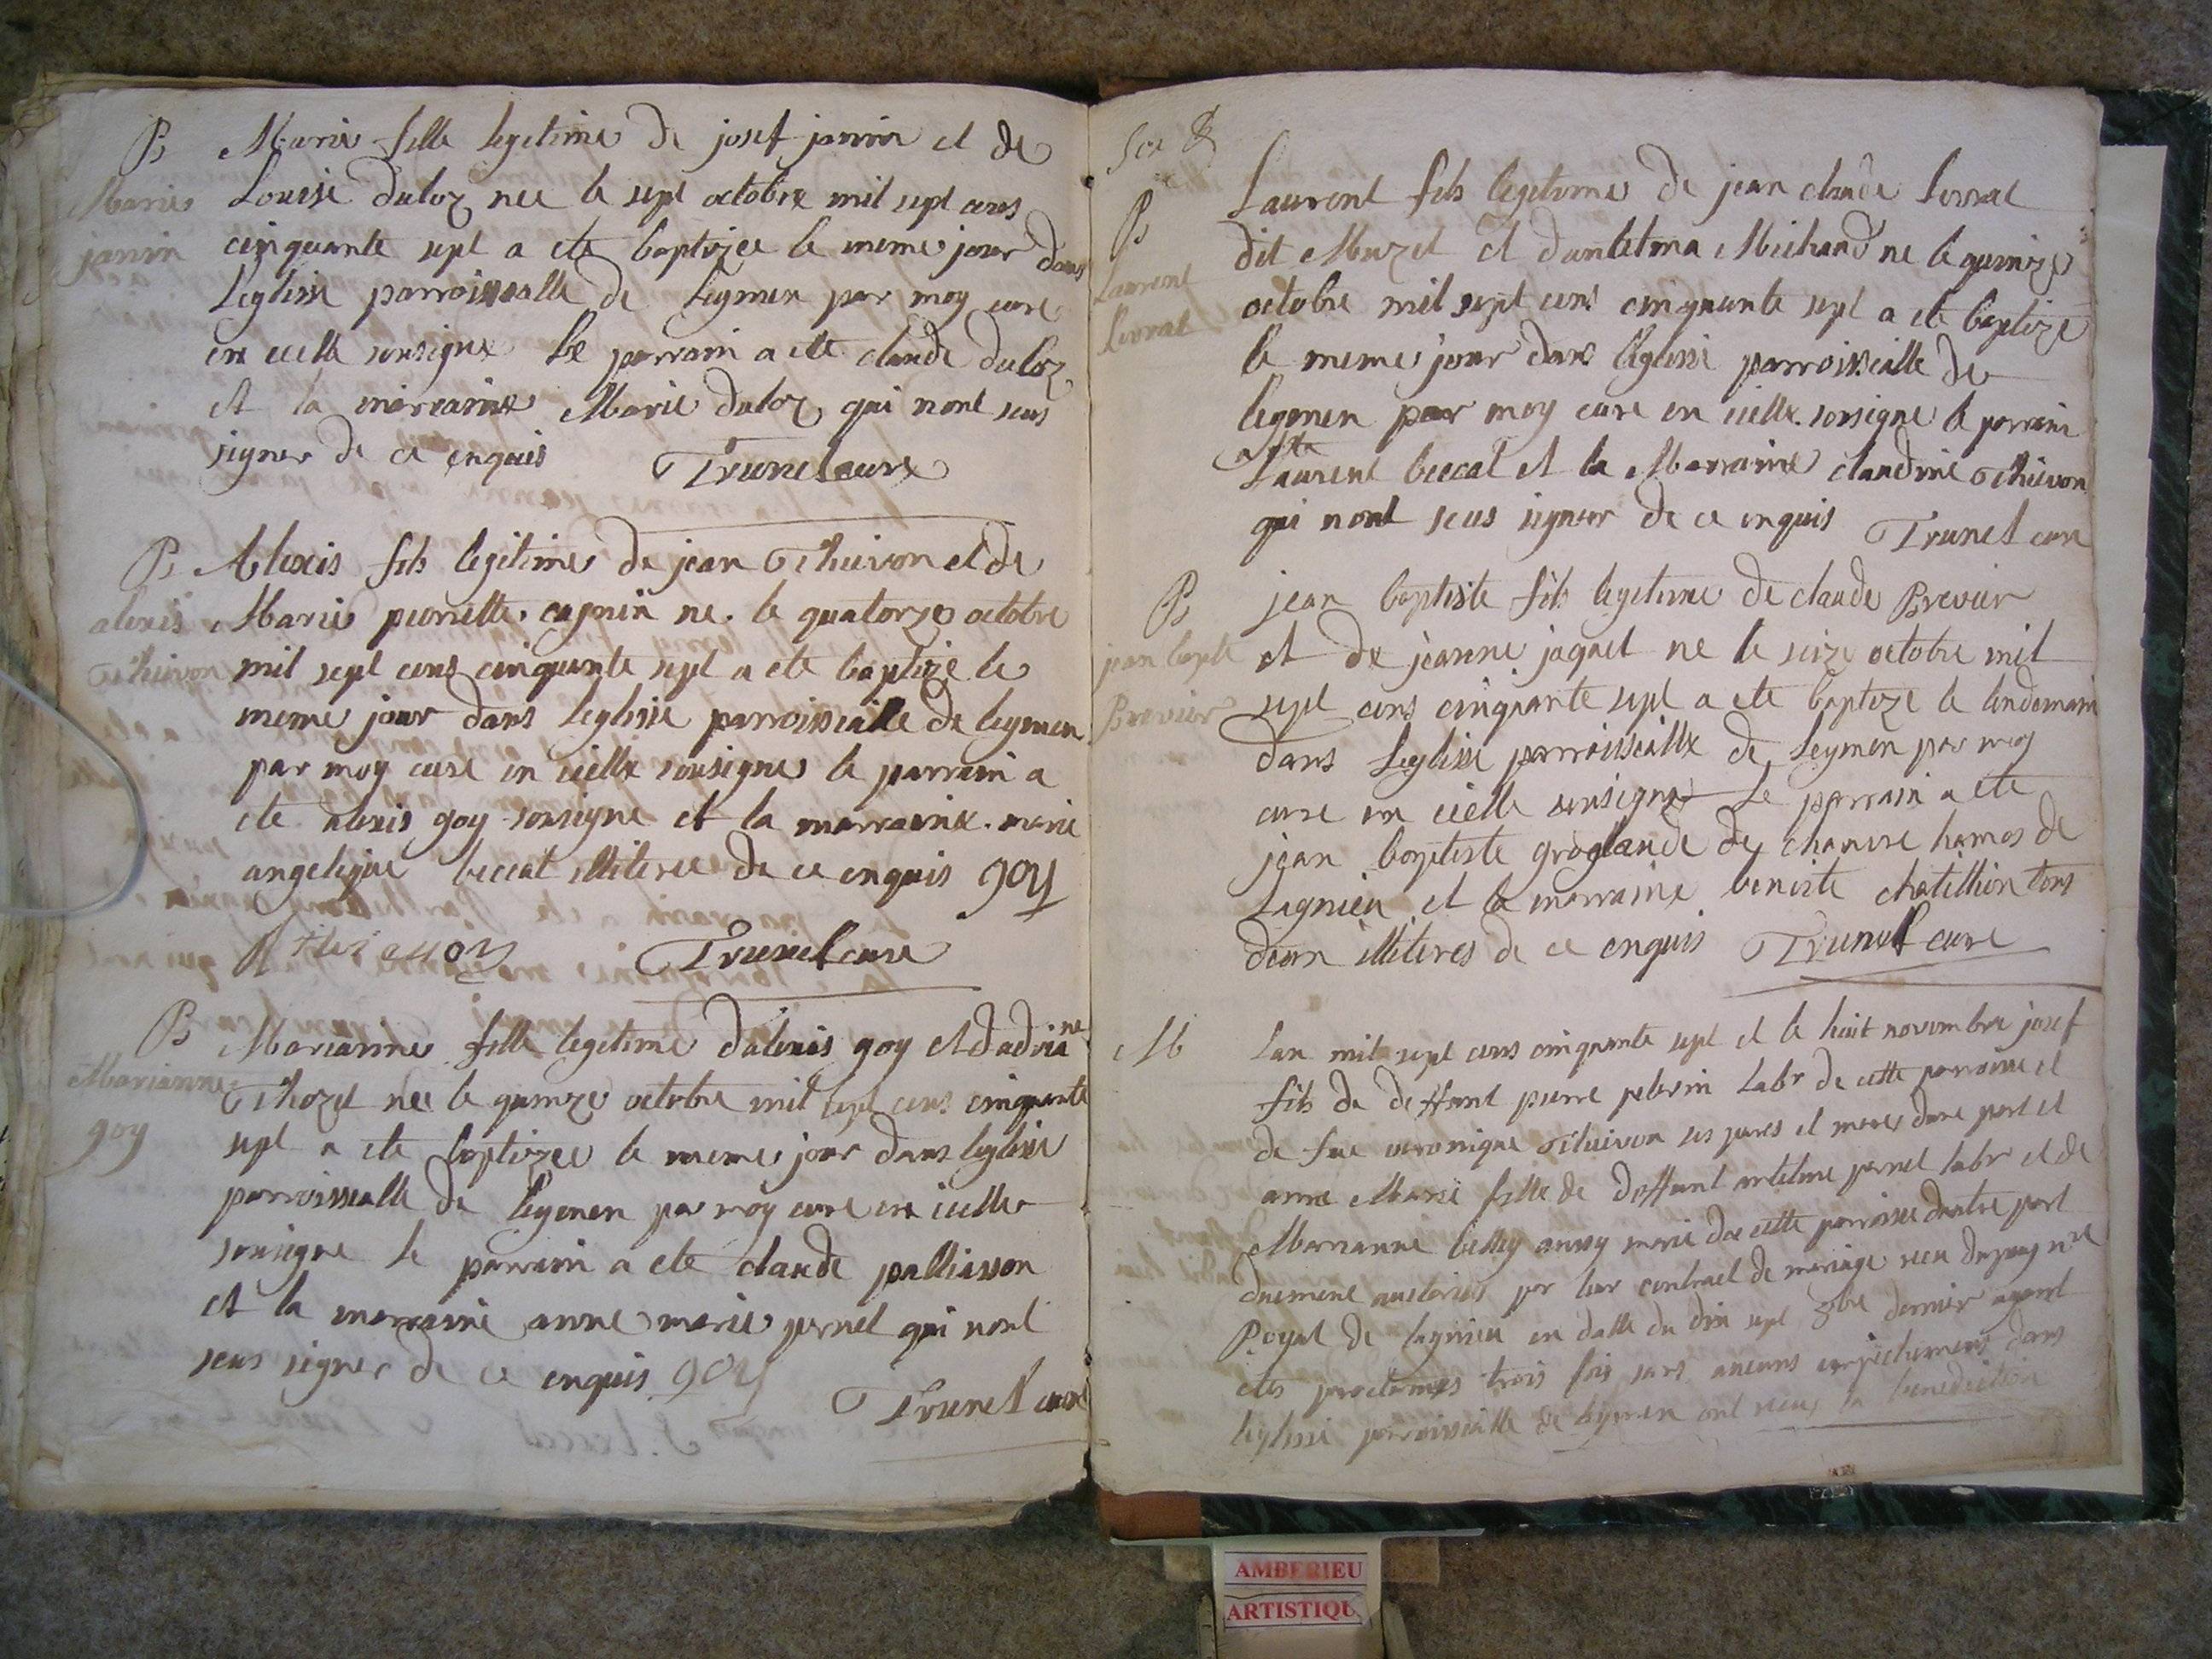 B
Marie
janin
Marie fille legetime de josef janin et de
Louise duloz nee le sept octobre mil sept cens
cinquante sept a ete baptizee le meme jour dans
Leglisse parroissialle de Leymen par moy cure
en icelle sousigne Le parrain a ete claude duloz
et la marraine Marie duloz qui nont seus
signer de ce enquis Trunel cure
B
alexis
Thievon
Alexis fils legitime de jean Thievon et de
Marie pierrette cagnin ne le quatorze octobre
mil sept cens cinquante sept a ete baptize le
meme jour dans leglisse parroissialle de leymen
par moy cure en icelle sousigne le parrain a
ete alexis goy sousigne et la marraine marie
angelique beccat illiteree de ce enquis goy
Trunel cure
B
Marianne
goy
Marianne fille legetime dalexis goy et dadriane
Thozet nee le quinze octobre mil sept cens cinquante
sept a ete baptizee le meme jour dans leglisse
parroissialle de leymen par moy cure en icelle
sousigne le parrain a ete claude palliasson
et la marraine anne marie pernet qui nont
seus signer de ce enquis goy
Trunel cure
B
Laurent
Livrat
Laurent fils legetime de jean claude Livrat
dit Muzet et dantelma Michand ne le quinze
octobre mil sept cens cinquante sept a ete baptize
le meme jour dans leglisse parroissialle de
leymen par moy cure en icelle sousigne le parrain
a ete
Laurent beccat et la Marraine claudine Thievon
qui nont seus signer de ce enquis Trunel cure
B
jean bapte
Brevier
jean baptiste fils legetime de claude Brevier
et de jeanne jaquet ne le seize octobre mil
sept cens cinquante sept a ete baptize le lendemain
dans Leglisse parroissialle de Leymen par moy
cure en icelle sousigne Le parrain a ete
jean baptiste groglaude de chanves hamos de
Lagnieu et la marraine benoite chatillion tous
deux illiteres de ce enquis Trunel cure
M
Lan mil sept cens cinquante sept et le huit novembre josef
fils de deffunt pierre pelerin Labr de cette parroisse et
de fue veronique Thievon ses peres et meres dune part et
anne Marie fille de deffunt antelme pernet labr et de
Marianne billey aussy marie de cette parroisse dautre part
duement auctorises par leur contract de mariage receu dupuy nre
Royal de lagnieu en datte du dix sept 8bre dernier ayant
etes proclames trois fois sans aucuns empechemens dans
leglisse parroissialle de leymen ont receu la benediction
AMBERIEU
ARTISTIQU